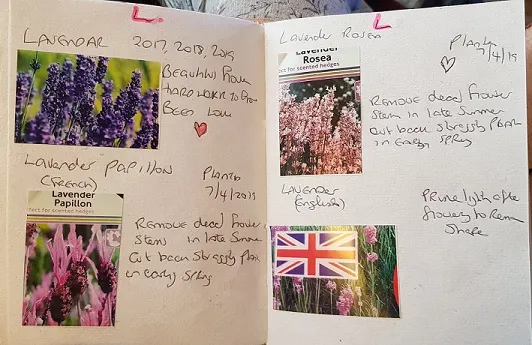 L
LAVENDAR 2017, 2018, 2019
HARD
BEES Love
Lavender Papillon
(French)
Planted
7/4/2019
Lavender
Papillon
fect for scented hedges
REMOVE dead flower
Stems in late Summer
Cut back straggly Plant
in early Spring
L
Lavender Rosea
Planted
7/4/19
Lavender
Rosea
ect for scented hedges
REMOVE dead flower
Stem in late Summer
Cut back straggly Plant
in Early Spring
LAVENDER
(English)
Prune lightly after
flowering to
Shape